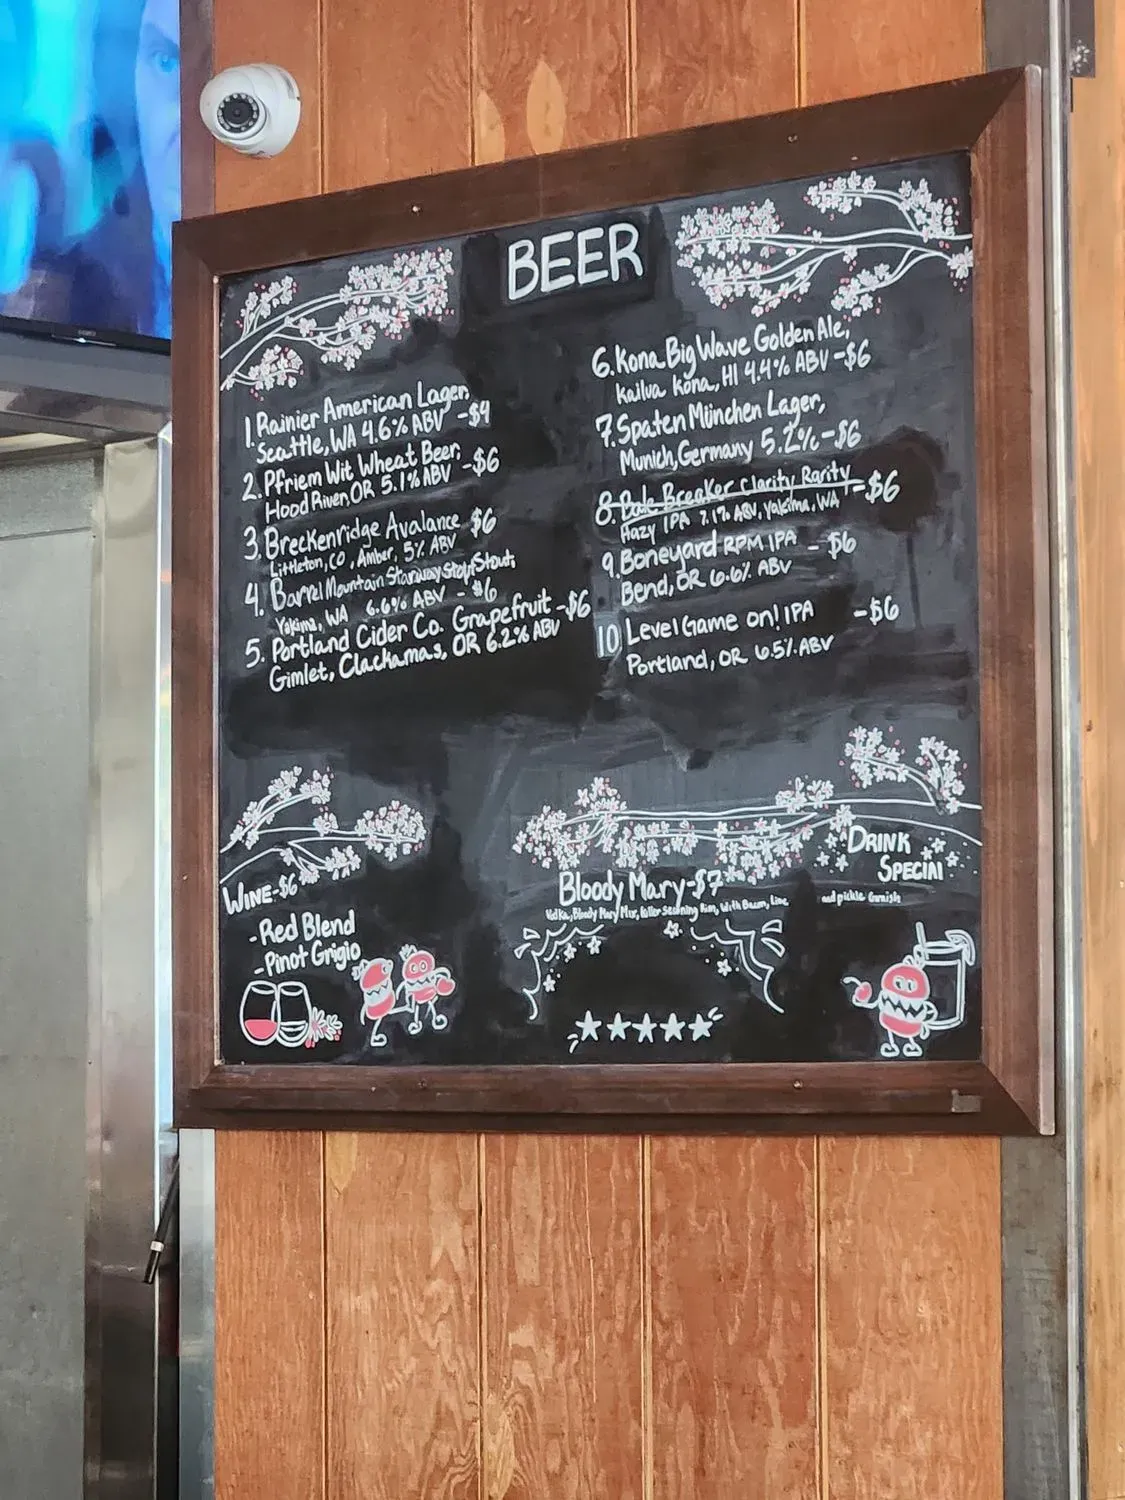 BEER
1. Rainier American Lager,
Seattle, WA 4.6% ABV -$4
2. Pfriem Wit Wheat Beer,
Hood River, OR 5.1% ABV -$6
3. Breckenridge Avalance $6
Littleton, CO, Amber, 5% ABV
4. Barrel Mountain Stairway Stout,
Yakima, WA 6.6% ABV -$6
5. Portland Cider Co. Grapefruit -$6
Gimlet, Clackamas, OR 6.2% ABV
6. Kona Big Wave Golden Ale,
Kailua Kona, HI 4.4% ABV -$6
7. Spaten München Lager,
Munich, Germany 5.2% -$6
8. Bale Breaker Clarity Rarity -$6
Hazy IPA 7.1% ABV, Yakima, WA
9. Boneyard RPM IPA - $6
Bend, OR 6.6% ABV
10 Level Game on! IPA -$6
Portland, OR 6.5% ABV
WINE-$6
-Red Blend
-Pinot Grigio
DRINK
SPECIAL
Bloody Mary-$7
Vodka, Bloody Mary Mix, Seasoning Rim, With Bacon, Lime
and pickle Garnish